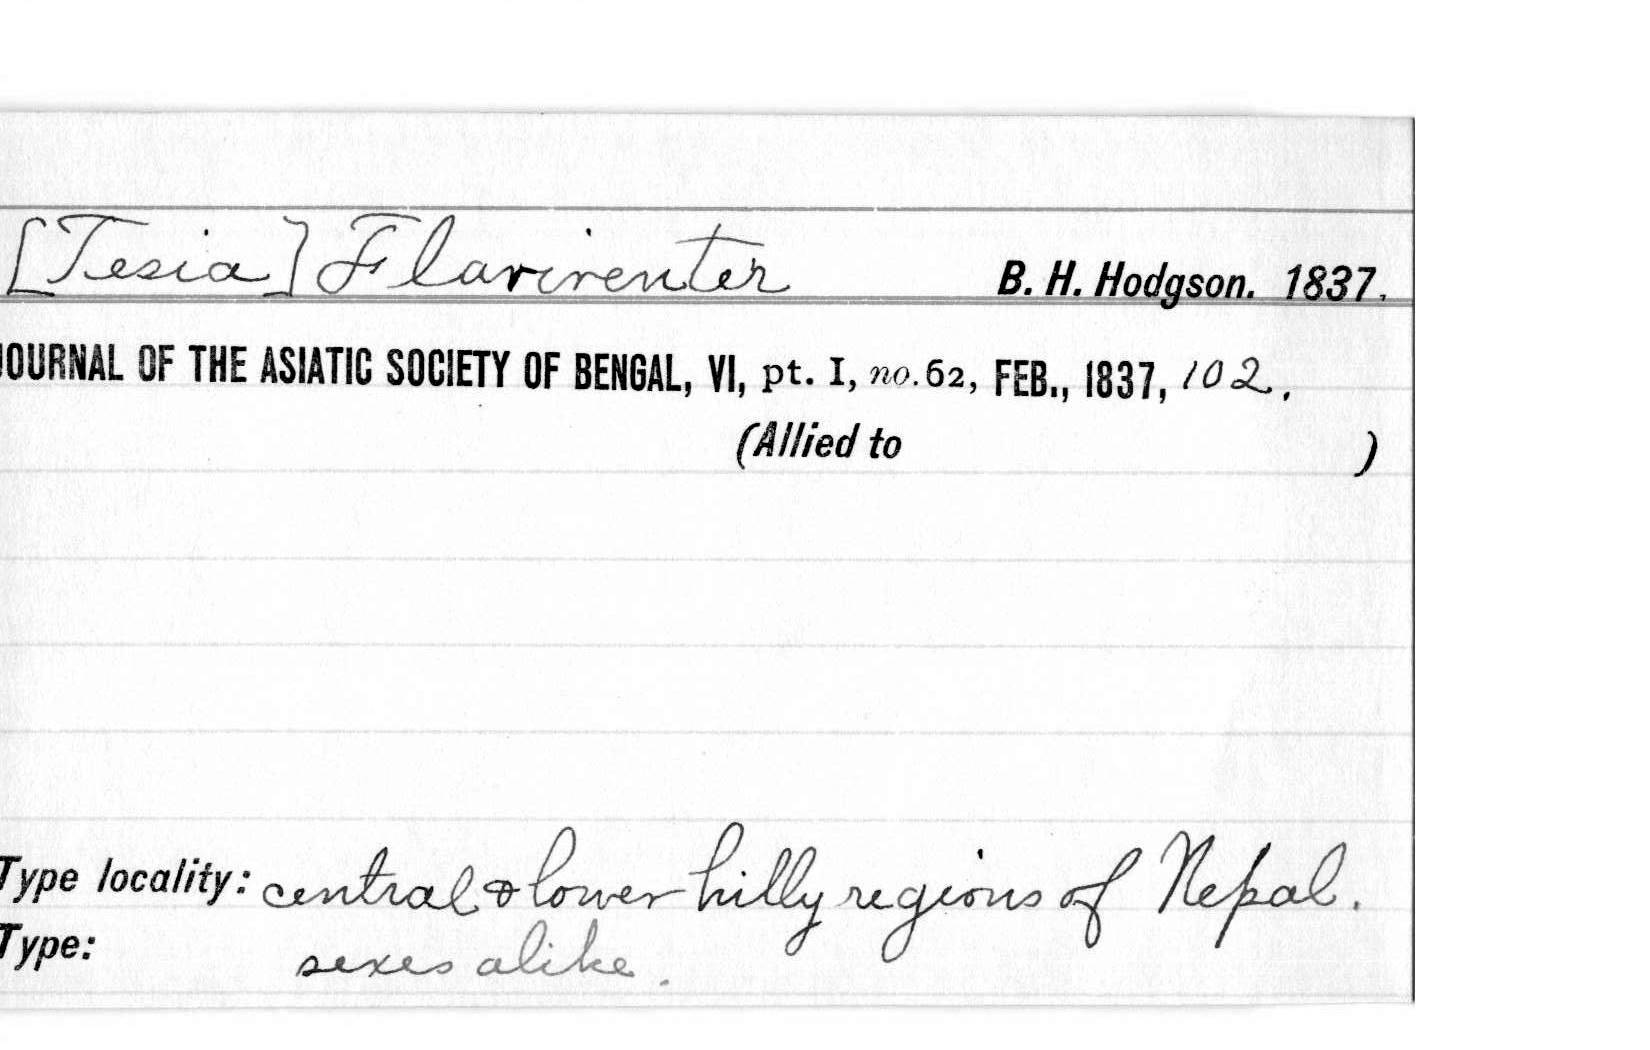 [Tesia] Flaviventer B. H. Hodgson. 1837.
JOURNAL OF THE ASIATIC SOCIETY OF BENGAL, VI, pt. I, no. 62, FEB., 1837, 102.
(Allied to )
Type locality: central & lower hilly regions of Nepal.
Type: sexes alike.